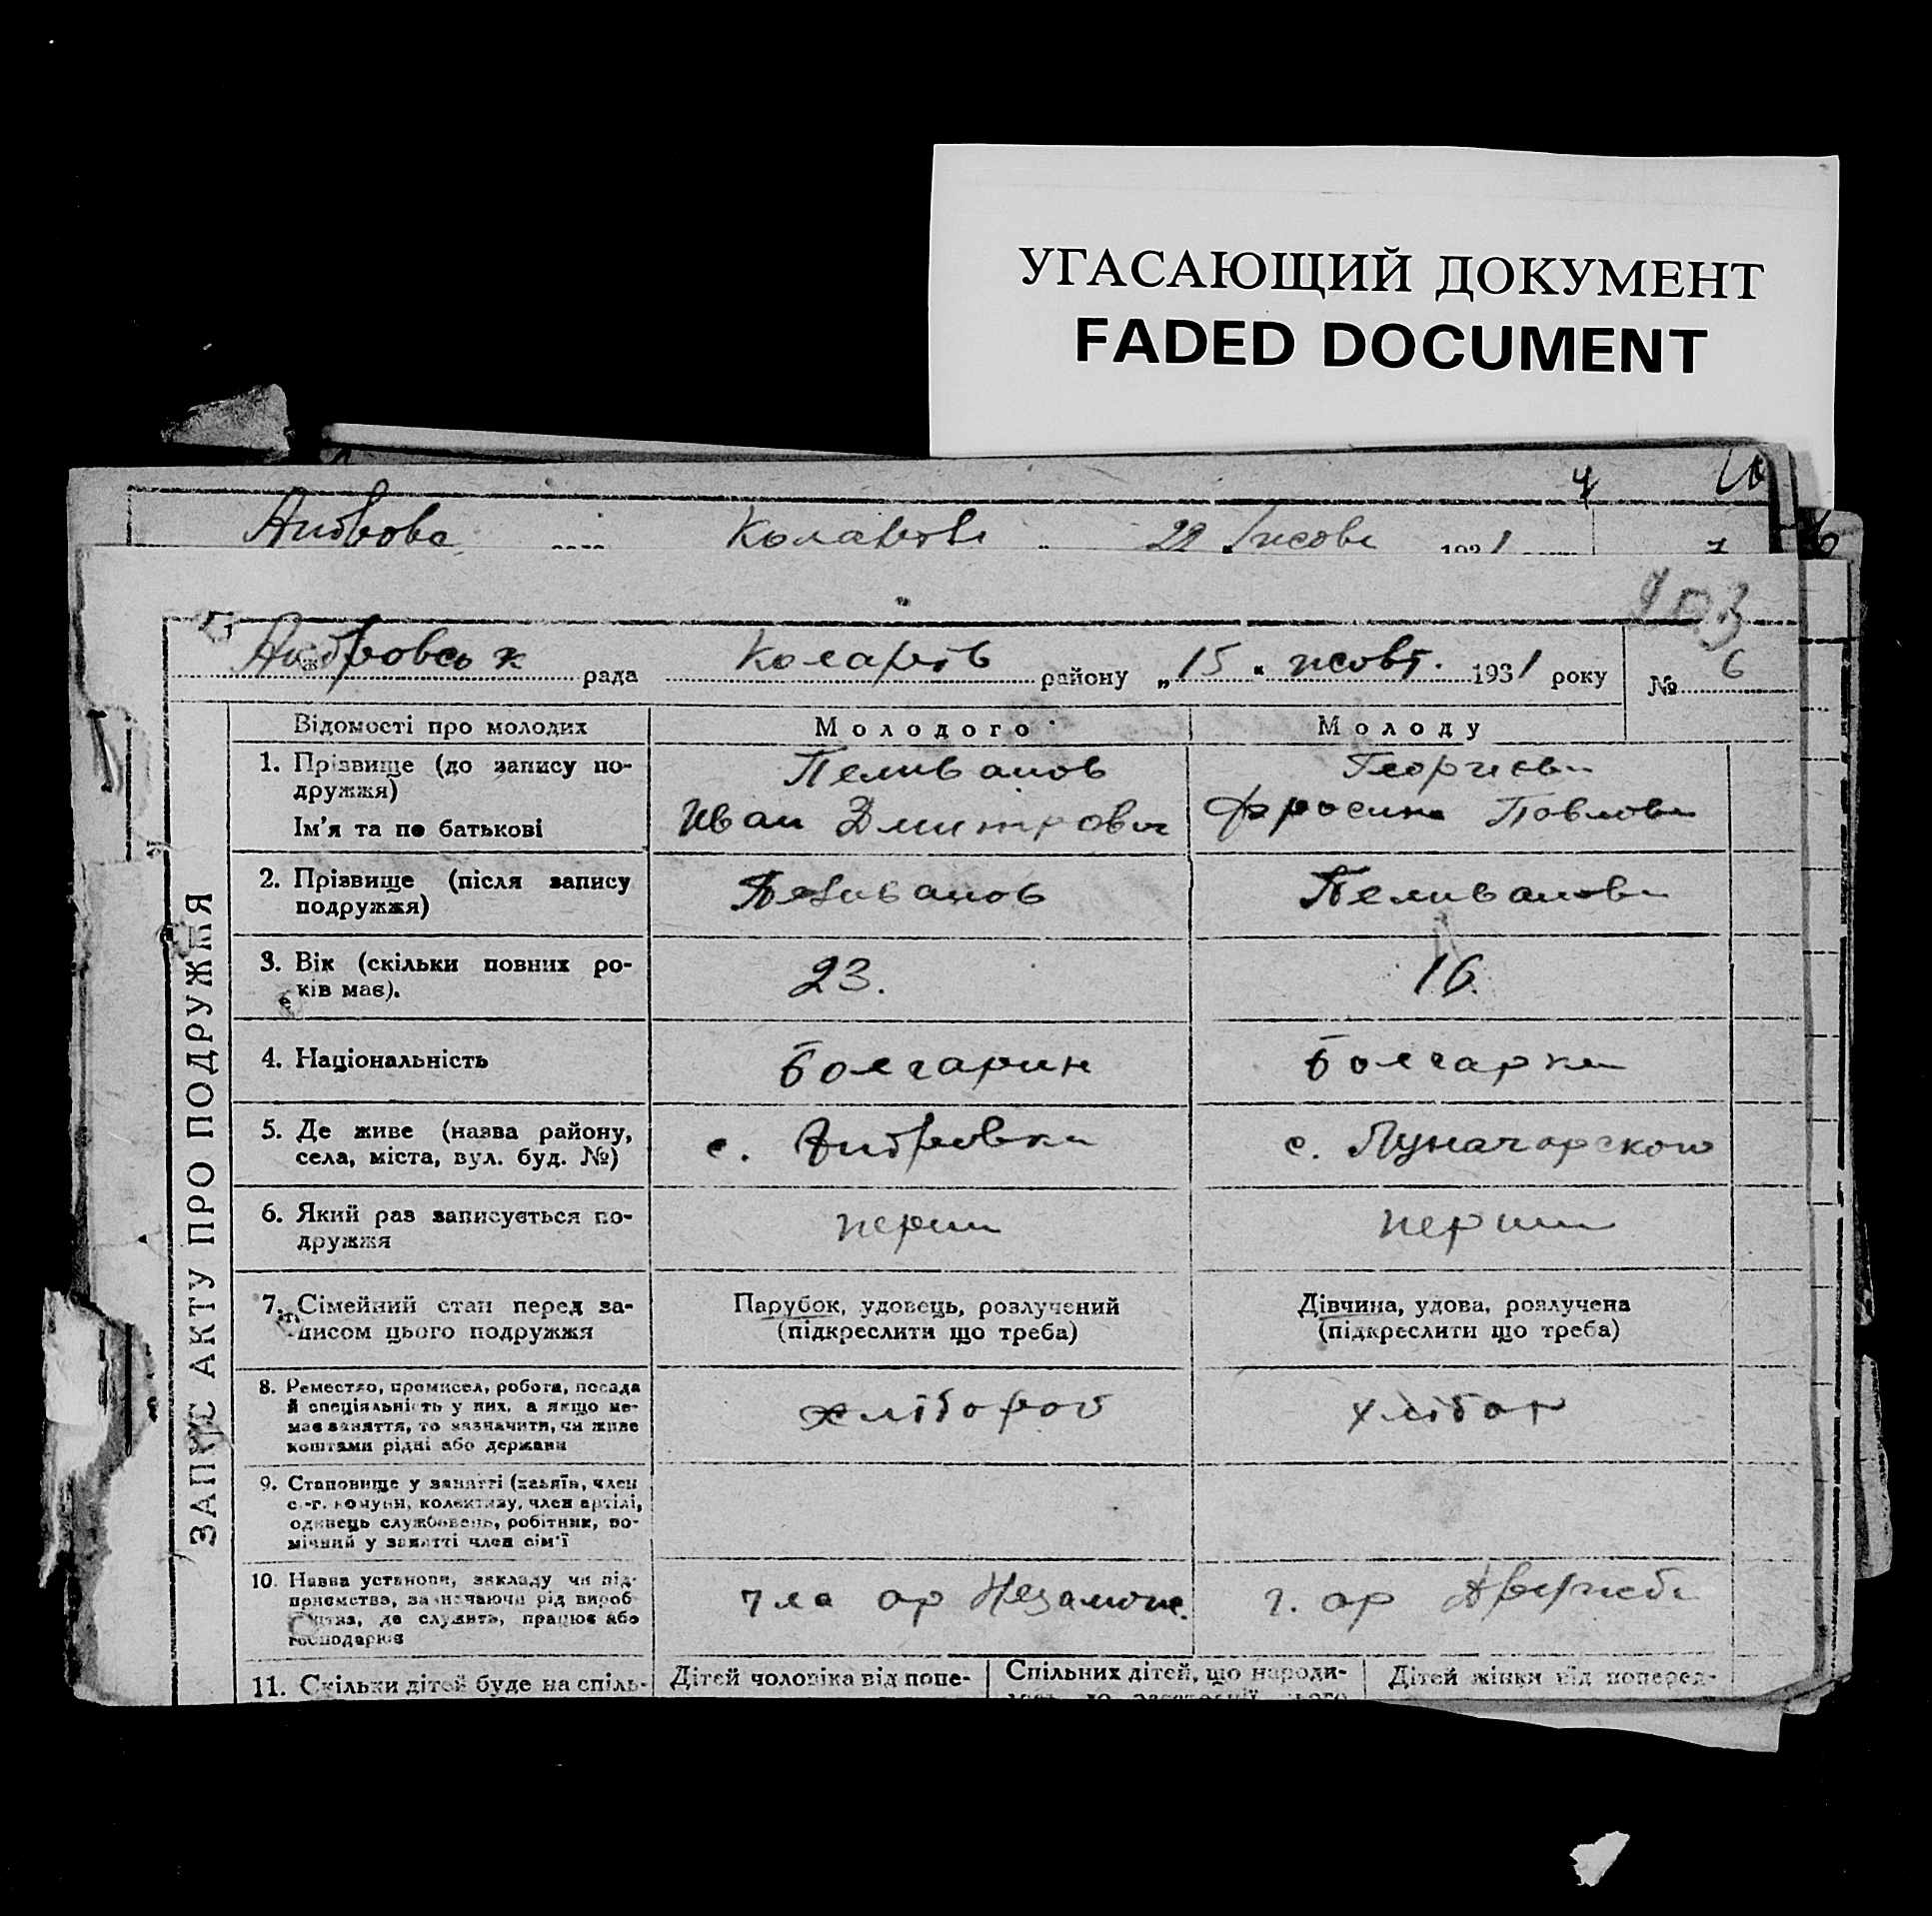 УГАСАЮЩИЙ ДОКУМЕНТ
FADED DOCUMENT
4
22 1931
7
203
Андровськ рада Коларів району „15" жовт. 1931 року № 6
ЗАПИС АКТУ ПРО ПОДРУЖЖЯ
Відомості про молодих Молодого Молоду
1. Прізвище (до запису по- Пеливанов Георгиева
дружжя)
Ім'я та по батькові Иван Дмитрович Фросина Павлова
2. Прізвище (після запису Пеливанов Пеливанова
подружжя)
3. Вік (скільки повних ро- 23. 16.
ків має).
4. Національність болгарин болгарка
5. Де живе (назва району, с. Андровка с. Луначарского
села, міста, вул. буд. №)
6. Який раз записується по- перши перши
дружжя
7. Сімейний стан перед за- Парубок, удовець, розлучений Дівчина, удова, розлучена
писом цього подружжя (підкреслити що треба) (підкреслити що треба)
8. Реместло, промисел, робота, посада
й спеціяльність у них, а якщо не- хлібороб хлібор
має заняття, то зазначити, чи живе
коштами рідні або держави
9. Становище у занятті (хазяїн, член
с.-г. комуни, колективу, член артілі,
одинець службовець, робітник, по-
мічний у занятті член сім'ї
10. Назва установи, закладу чи під-
приємства, зазначаючи рід вироб- ар Незамож. ар
ництва, де служить, працює або
господарює
11. Скільки дітей буде на спіль- Дітей чоловіка від попе- Спільних дітей, що народи- Дітей жінки від поперед-